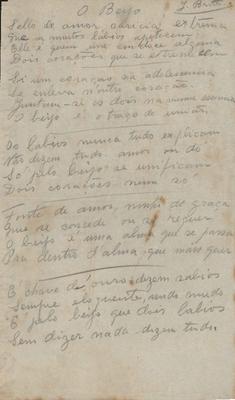 O Beijo J. Britto
Sello de amor, caricia extrema
Que os muitos labios apetecem
Elle é quem une emblace algema
Dois corações que se estremecem
Si um coração na adolescencia
Se enleva noutro coração.
Juntam-se os dois na mesma essencia
O beijo é o traço de união
Os labios nunca tudo explicam
Nos dizem tudo amor ou dó
Só pelo beijo se unificam
Dois corações num só
Fonte de amor, ninho de graça
Que se concede ou se requer
O beijo é uma alma que se passa
Pra dentro d'alma que mais quer
É chave d'ouro dizem sabios
Sempre eloquente, sendo mudo
É pelo beijo que dois labios
Sem dizer nada dizem tudo